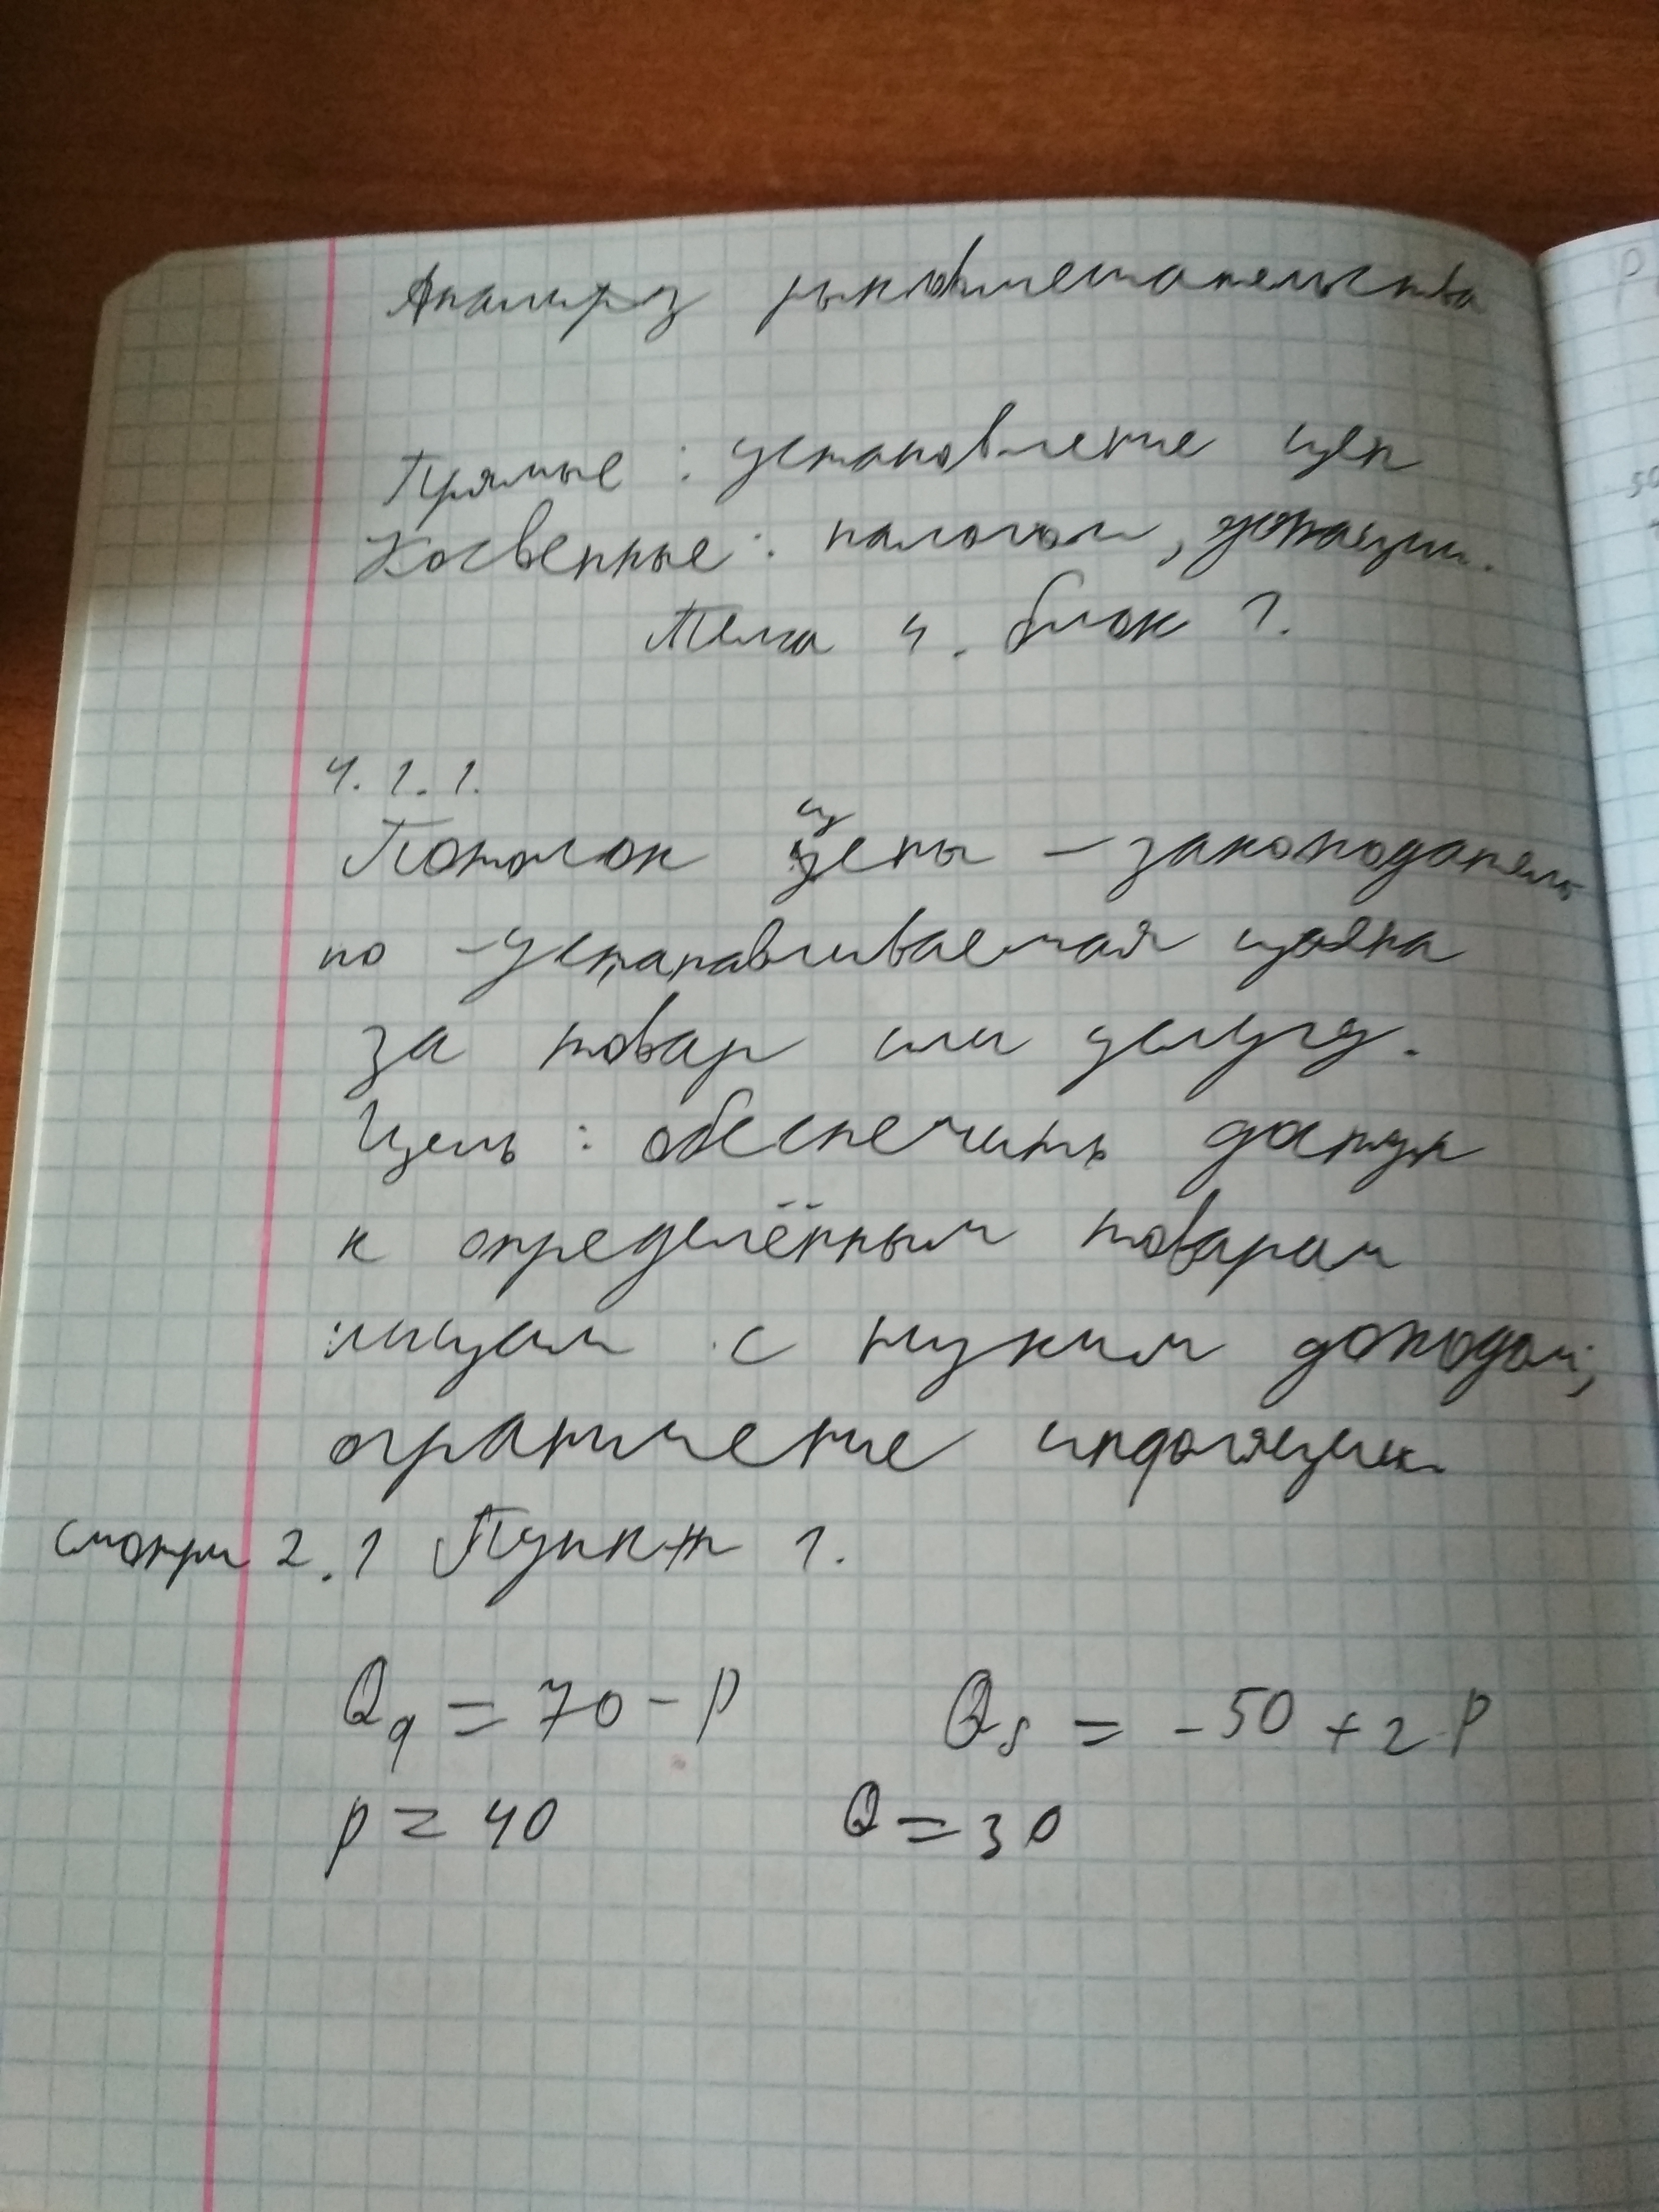 Анализ рыновмешательства
Прямые : установление цен
Косвенные : налогом, дотации.
Тема 4. блок 1.
4.1.1.
Потолок цены – законодатель
но -устанавливаемая цена
за товар или услугу.
Цель : обеспечить доступ
к определённым товарам
лицам с низким доходом;
ограничение индоляции.
смотри 2.1 Пункт 1.
Qq = 70 - P Qs = -50 + 2P
P = 40 Q = 30
P
50